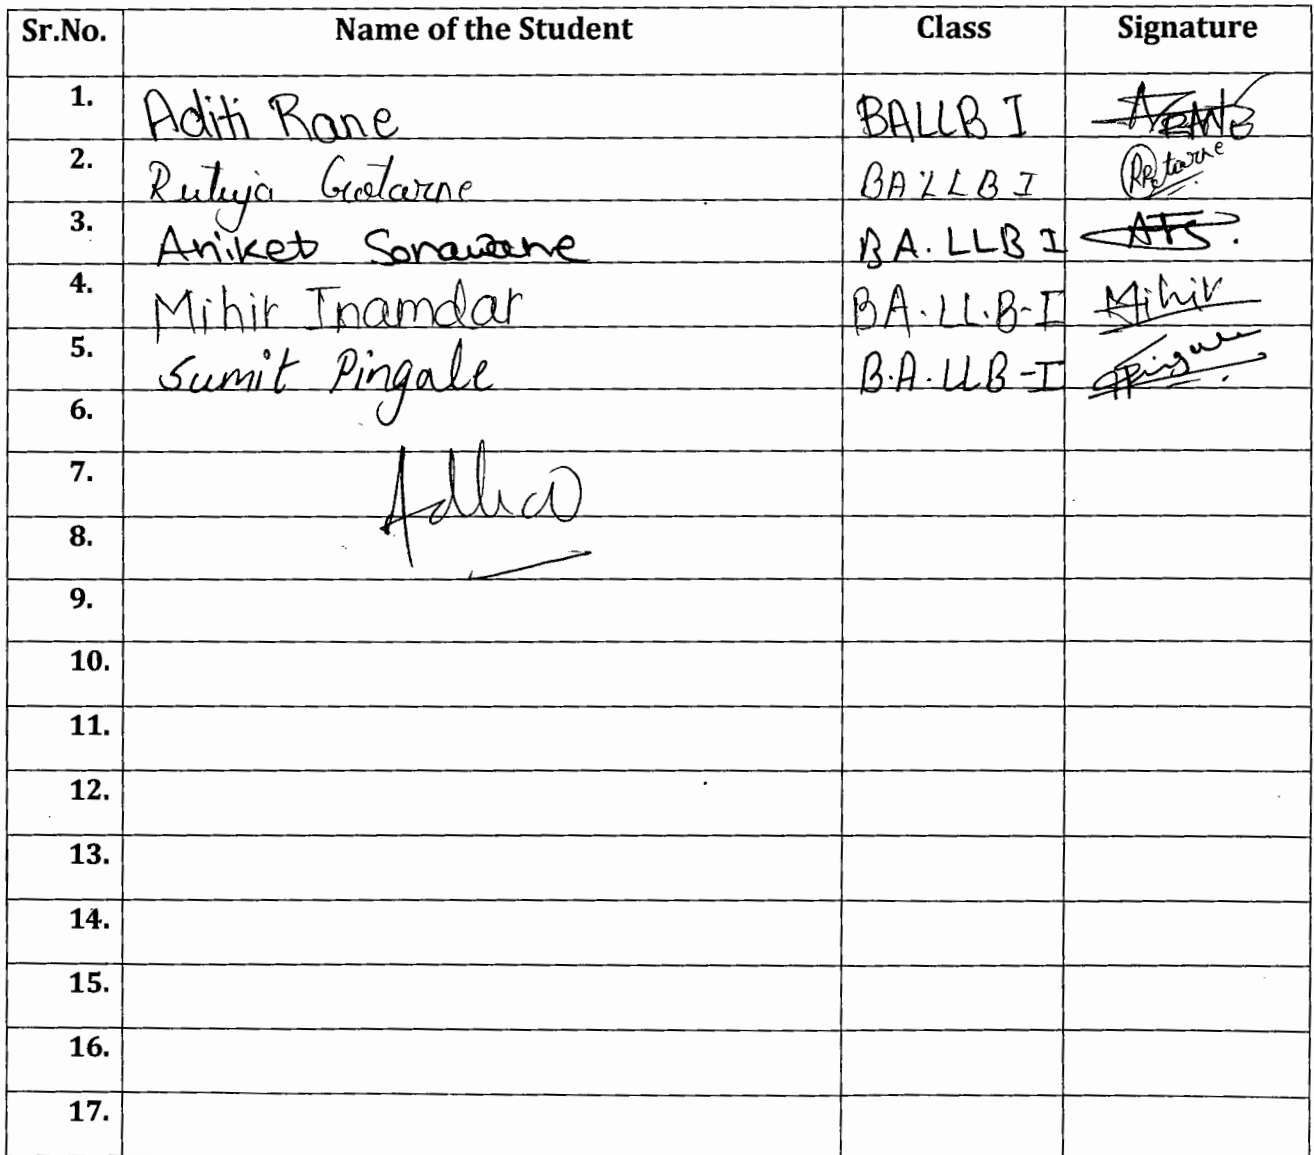 Sr.No. Name of the Student Class Signature
1. Aditi Rane BALLB I ARANE
2. Rutuja Gotarne BALLB I
3. Aniket Sonawane BA.LLB I ATS.
4. Mihir Inamdar BA.LL.B-I Mihir
5. Sumit Pingale B.A.LLB-I Pingale
6.
7.
8.
9.
10.
11.
12.
13.
14.
15.
16.
17.